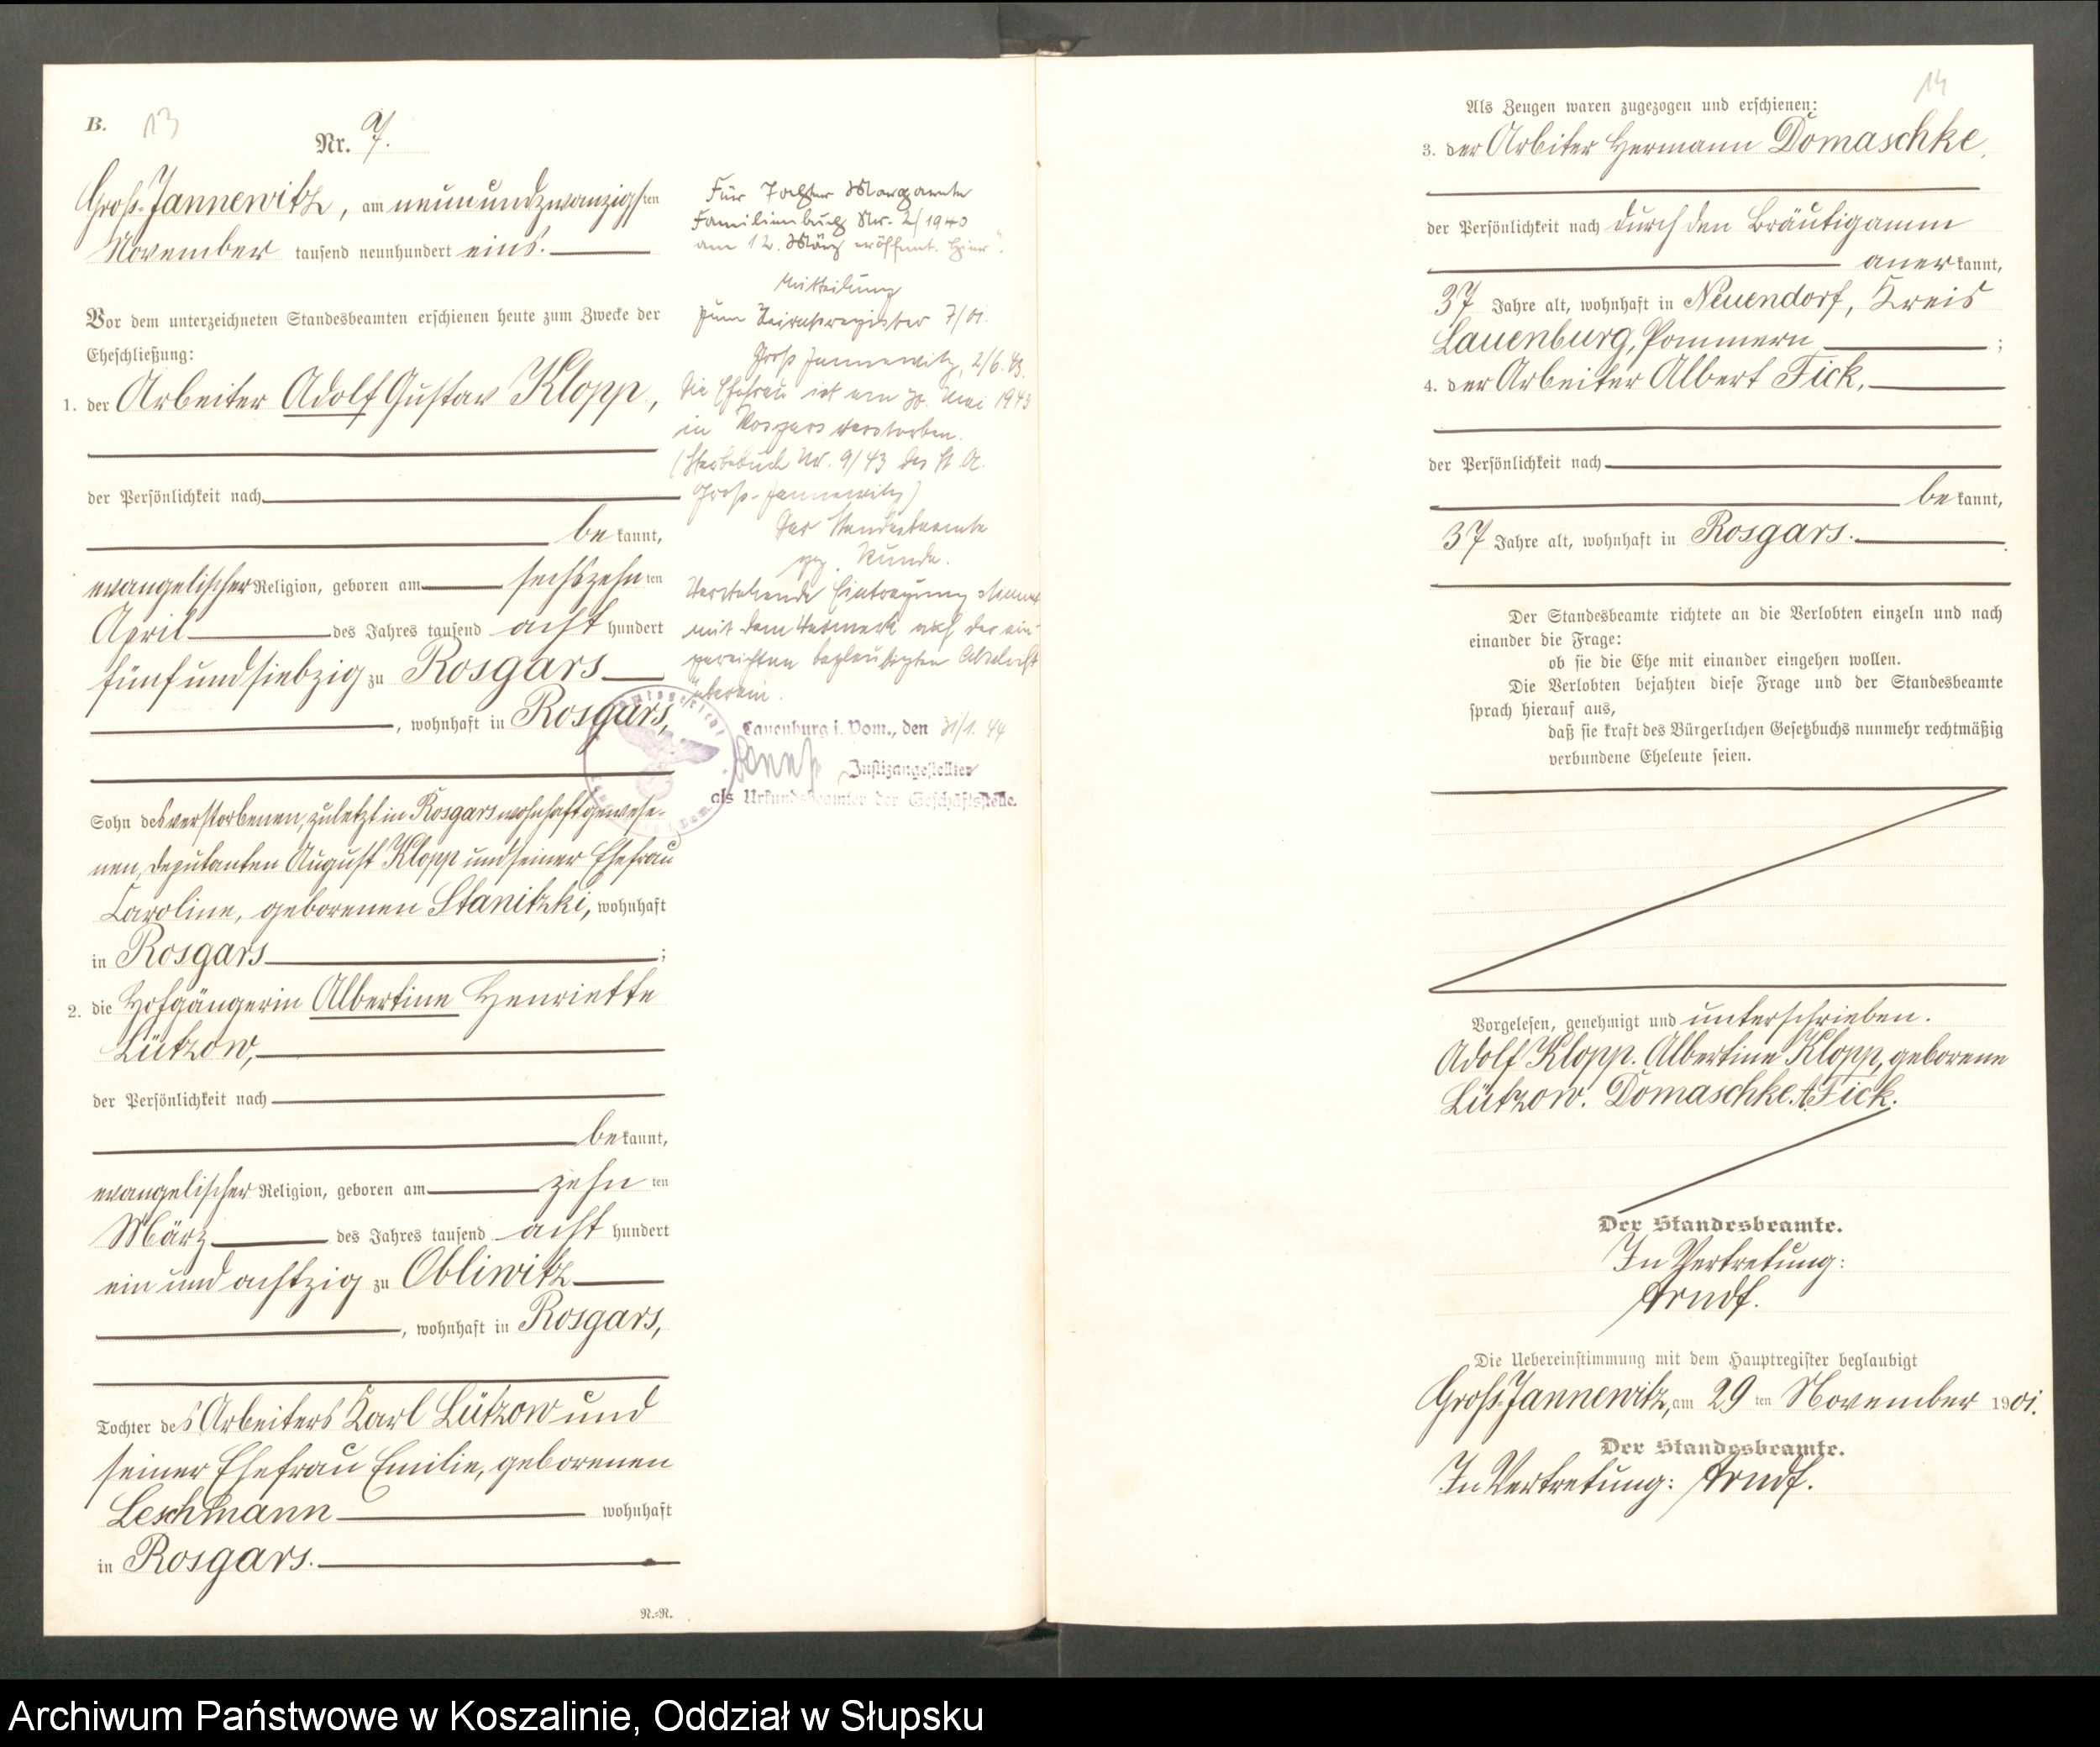 B.
13
Nr. 7.
Groß-Jannewitz, am neunundzwanzigsten
November tausend neunhundert eins.
Vor dem unterzeichneten Standesbeamten erschienen heute zum Zwecke der
Eheschließung:
1. der Arbeiter Adolf Gustav Klopp,
der Persönlichkeit nach
be kannt,
evangelischer Religion, geboren am sechszehn ten
April des Jahres tausend acht hundert
fünfundsiebzig zu Rosgars
, wohnhaft in Rosgars,
Sohn des verstorbenen, zuletzt in Rosgars wohnhaft gewese-
nen, Deputanten August Klopp und seiner Ehefrau
Caroline, geborenen Stanitzki, wohnhaft
in Rosgars ;
2. die Hofgängerin Albertine Henriette
Lützow,
der Persönlichkeit nach
be kannt,
evangelischer Religion, geboren am zehn ten
März des Jahres tausend acht hundert
ein und achtzig zu Obliwitz
, wohnhaft in Rosgars,
Tochter des Arbeiters Karl Lützow und
seiner Ehefrau Emilie, geborenen
Leschmann wohnhaft
in Rosgars.
N.=N.
Für Tochter Margarete
Familienbuch Nr. 2/1940
am 12. März eröffnet. hier".
Mitteilung
zum Heiratsregister 7/01.
Groß Jannewitz, 2/6. 43.
Die Ehefrau ist am 30. Mai 1943
in Rosgars verstorben.
(Sterbebuch Nr. 9/43 des St. A.
Groß-Jannewitz)
Der Standesbeamte
gez. Kunde.
Vorstehende Eintragung stimmt
mit dem Vermerk auf der ein-
gereichten beglaubigten Abschrift
überein.
Lauenburg i. Pom., den 31/1. 44
Justizangestellter
als Urkundsbeamter der Geschäftsstelle.
14
Als Zeugen waren zugezogen und erschienen:
3. der Arbiter Hermann Domaschke,
der Persönlichkeit nach durch den Bräutigamm
aner kannt,
37 Jahre alt, wohnhaft in Neuendorf, Kreis
Lauenburg, Pommern ;
4. der Arbeiter Albert Fick,
der Persönlichkeit nach
be kannt,
37 Jahre alt, wohnhaft in Rosgars.
Der Standesbeamte richtete an die Verlobten einzeln und nach
einander die Frage:
ob sie die Ehe mit einander eingehen wollen.
Die Verlobten bejahten diese Frage und der Standesbeamte
sprach hierauf aus,
daß sie kraft des Bürgerlichen Gesetzbuchs nunmehr rechtmäßig
verbundene Eheleute seien.
Vorgelesen, genehmigt und unterschrieben.
Adolf Klopp. Albertine Klopp, geborene
Lützow. Domaschke. A. Fick.
Der Standesbeamte.
In Vertretung:
Arndt.
Die Uebereinstimmung mit dem Hauptregister beglaubigt
Groß-Jannewitz, am 29 ten November 1901.
Der Standesbeamte.
In Vertretung: Arndt.
Archiwum Państwowe w Koszalinie, Oddział w Słupsku